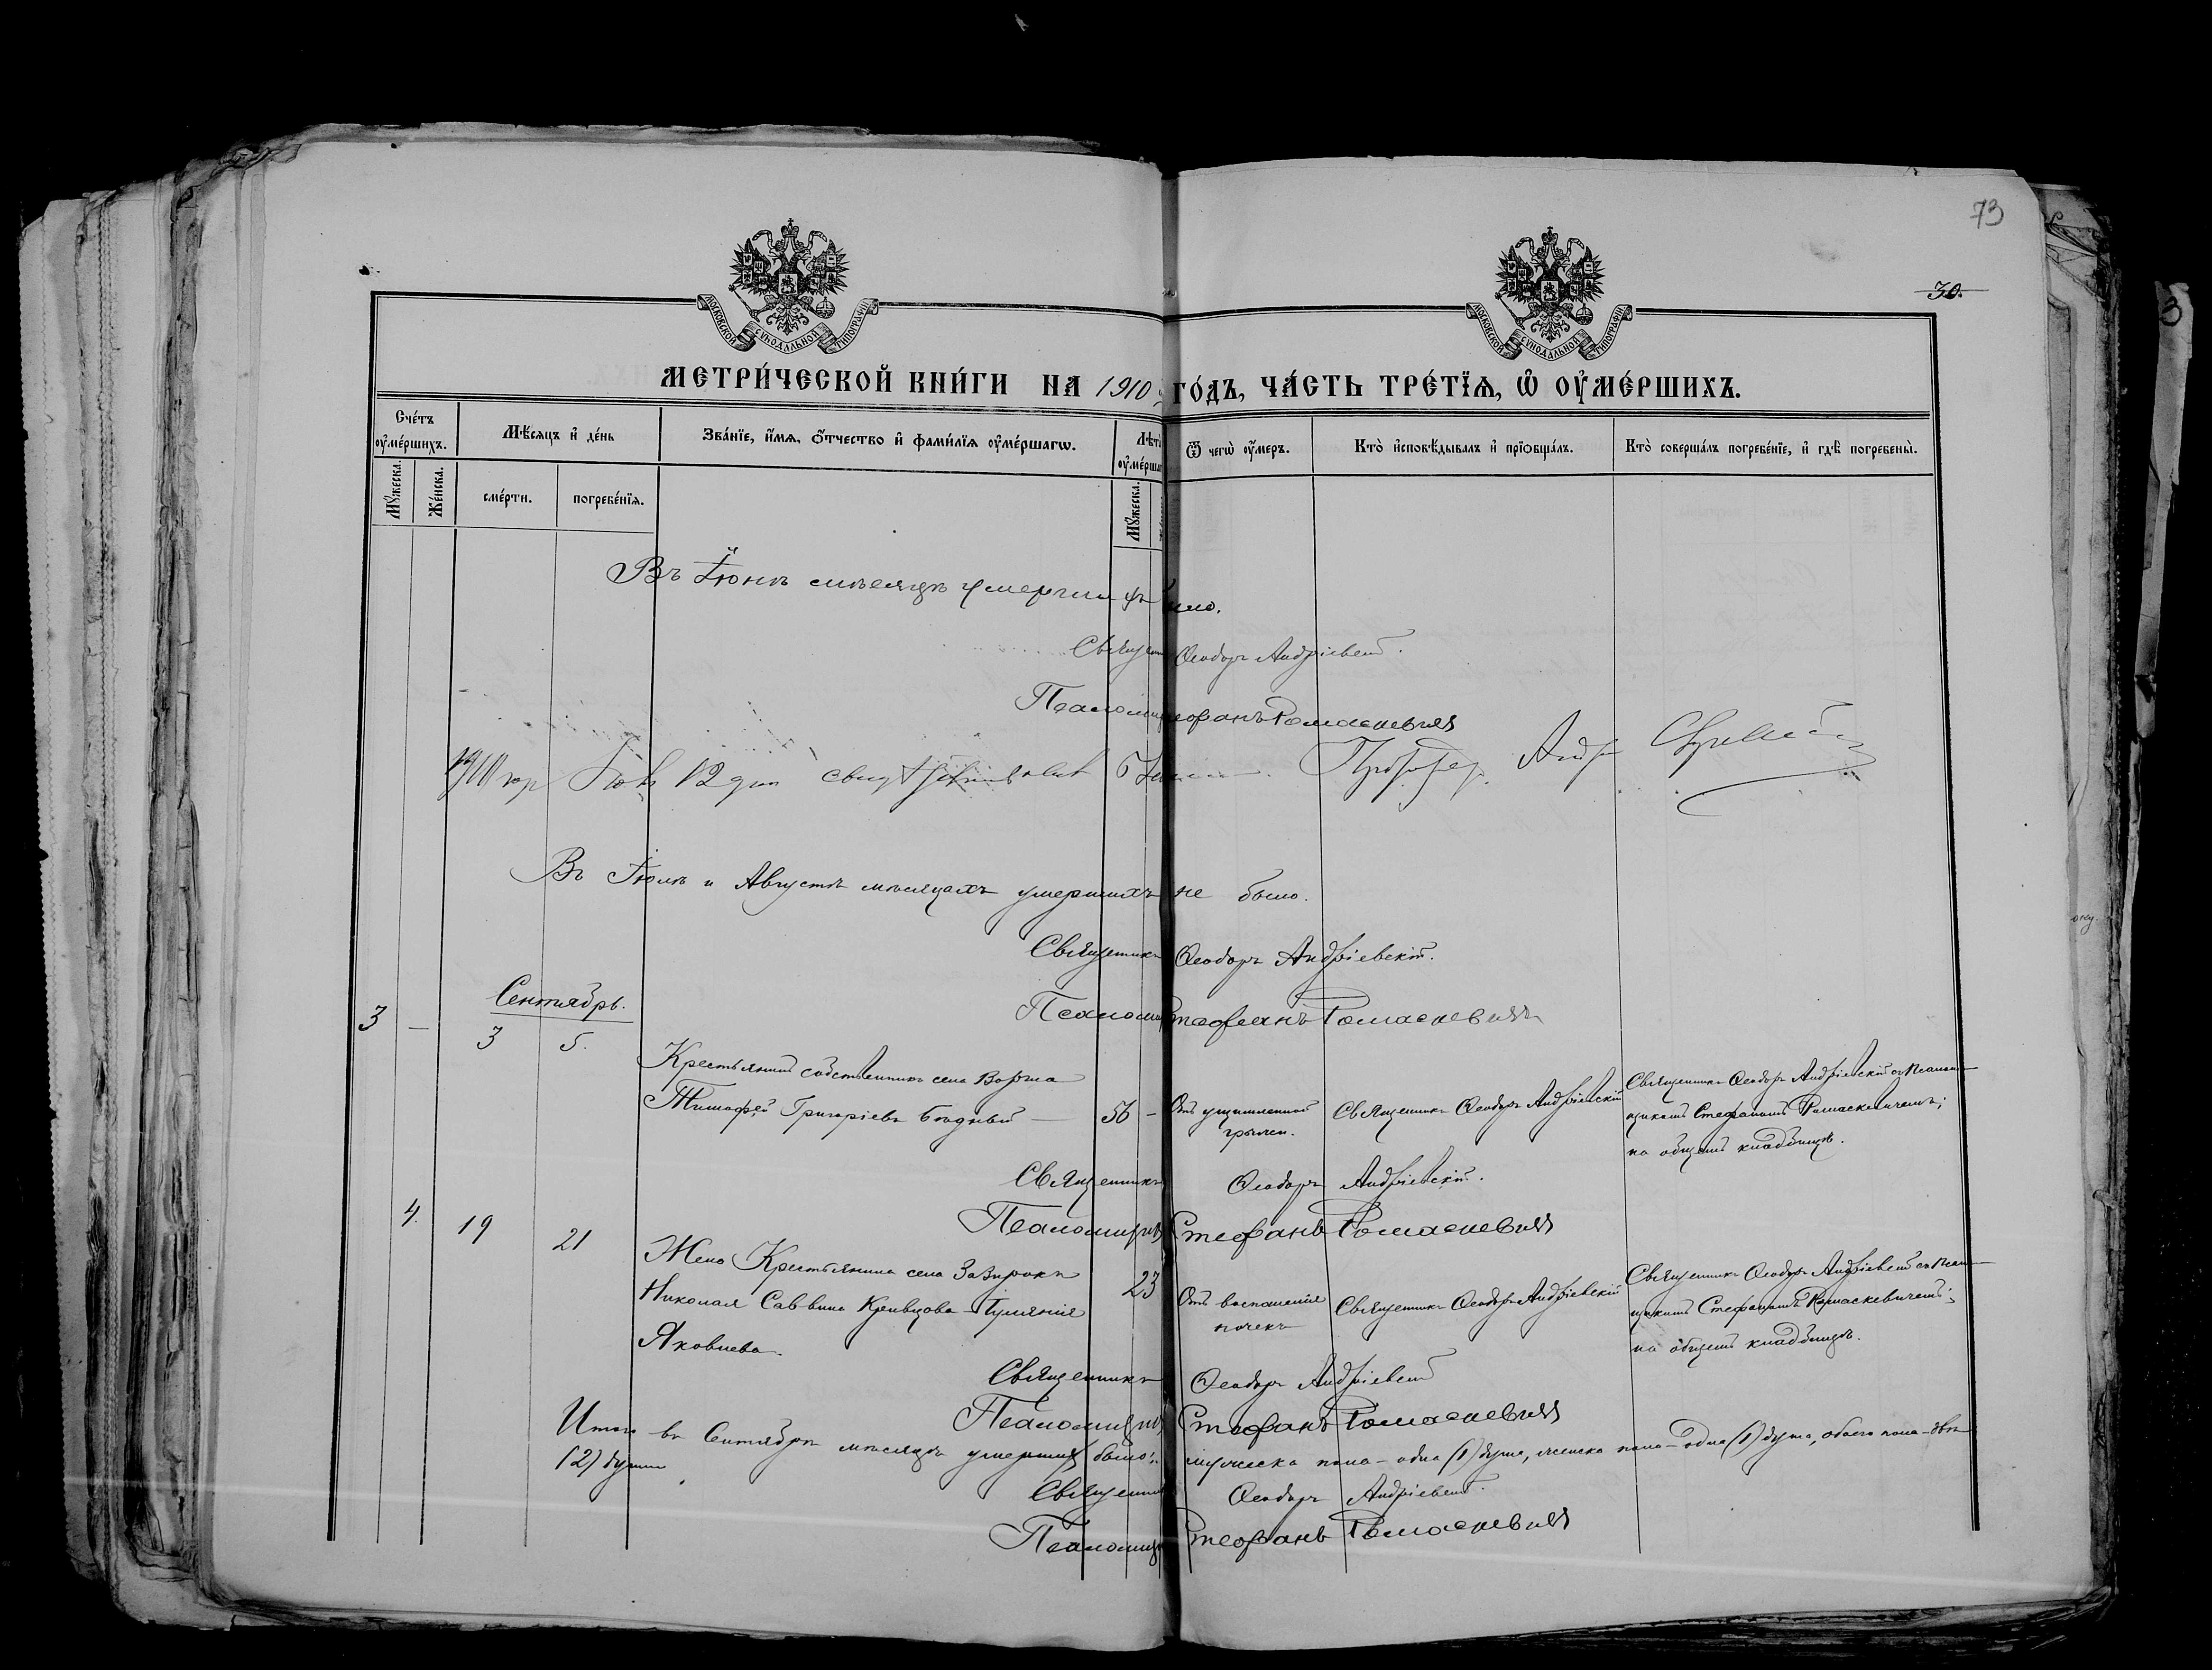 73
30.
МОСКОВСКОЙ СѴНОДАЛЬНОЙ ТИПОГРАФІИ
МОСКОВСКОЙ СѴНОДАЛЬНОЙ ТИПОГРАФІИ
МЕТРИ́ЧЕСКОЙ КНИ́ГИ НА 1910 ГО́ДЪ, ЧА́СТЬ ТРЕ́ТЇѦ, Ѡ҆ ОУ҆МЕ́РШИХЪ.
Сче́тъ оу҆ме́ршихъ.
Мѣ́сѧцъ и҆ де́нь
Зва́нїе, и҆́мѧ, ѻ҆́тчество и҆ фами́лїѧ оу҆ме́ршагѡ.
Лѣт
оу҆ме́рша
Ѿ чегѡ̀ оу҆́меръ.
Кто̀ и҆сповѣ́дывалъ и҆ прїѡбща́лъ.
Кто̀ соверша́лъ погребе́нїе, и҆ гдѣ̀ погребены̀.
Мꙋ́жеска.
Же́нска.
сме́рти.
погребе́нїѧ.
Мꙋ́жеска.
Въ Іюнѣ мѣсяцѣ умерши
Священ Ѳеодоръ Андріевскій.
Псаломщ Стефанъ Ромаскевичъ
12 дня
Въ Іюлѣ и Августѣ мѣсяцахъ умершихъ не было.
Священникъ Ѳеодоръ Андріевскій.
Псалом Стефанъ Ромаскевичъ
Сентябрь.
3 — 3 5.
Крестьянинъ собственникъ села Воргла
Тимофей Григоріевъ Бѣдный — 56 —
Отъ ущемленной грыжи.
Священникъ Ѳеодоръ Андріевскій
Священникъ Ѳеодоръ Андріевскій съ Псалом-
щикомъ Стефаномъ Ромаскевичемъ;
на общемъ кладбищѣ.
Священникъ Ѳеодоръ Андріевскій.
Псаломщикъ Стефанъ Ромаскевичъ
4. 19 21
Жена Крестьянина села Зазирокъ
Николая Саввина Кривцова
Яковлева.
23
Отъ воспаленія почекъ
Священникъ Ѳеодоръ Андріевскій
Священникъ Ѳеодоръ Андріевскій съ Псалом-
щикомъ Стефаномъ Ромаскевичемъ;
на общемъ кладбищѣ.
Священникъ Ѳеодоръ Андріевскій
Псаломщикъ Стефанъ Ромаскевичъ
Итого въ Сентябрѣ мѣсяцѣ умершихъ было: мужеска пола – одна (1) душа, женска пола – одна (1) душа, обоего пола – двѣ
(2) души
Священник Ѳеодоръ Андріевскій.
Псаломщ Стефанъ Ромаскевичъ